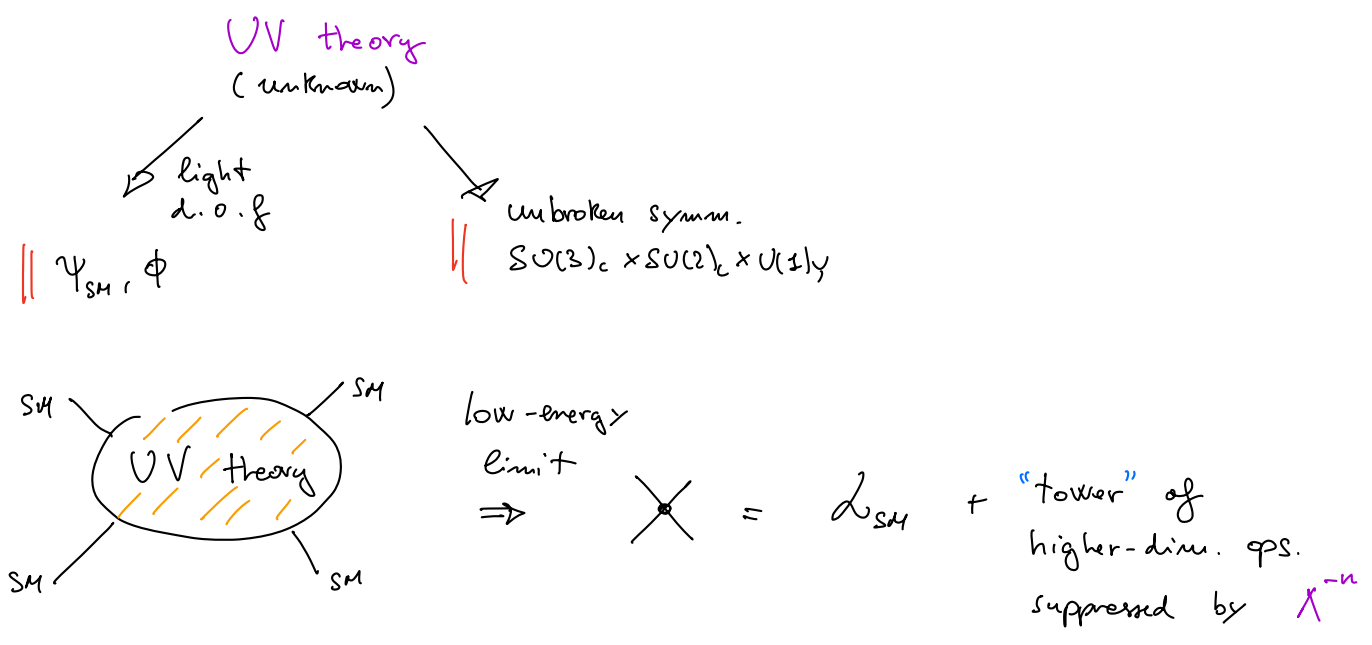 UV theory
(unknown)
light
d.o.f
unbroken symm.
SU(3)_c × SU(2)_L × U(1)_y
ψ_SM, ϕ
SM
SM
UV theory
SM
SM
low-energy
limit
⇒
= ℒ_SM + "tower" of
higher-dim. ops.
suppressed by Λ^-n